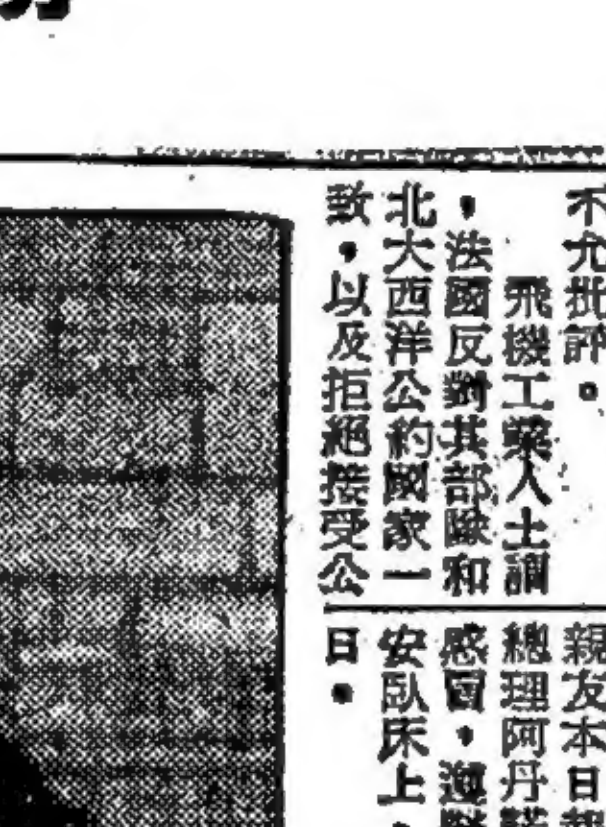 不允批評。
飛機工業人士謂
，法國反對其部隊和
北大西洋公約國家一
致，以及拒絕接受公
親友本日
總理阿丹
感冒，遵
安臥床上，
日。